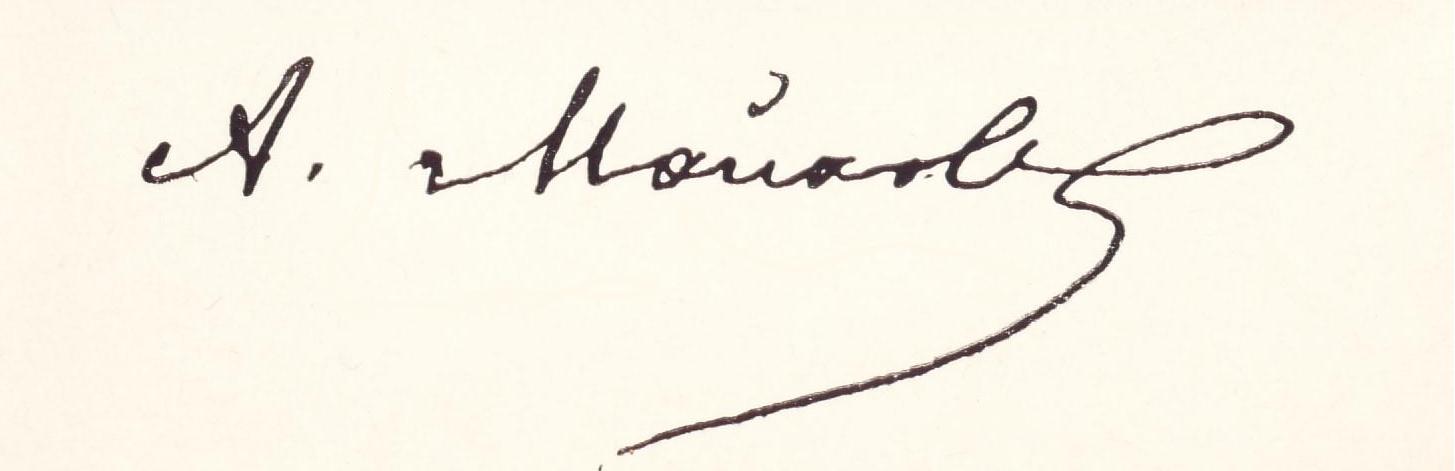 А. Майковъ